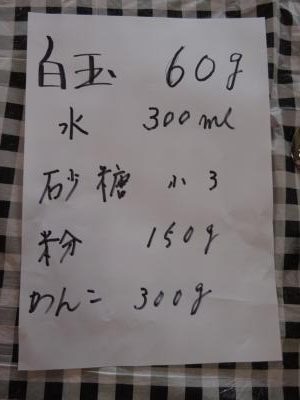 白玉 60g
水 300ml
砂糖 小3
粉 150g
あんこ 300g